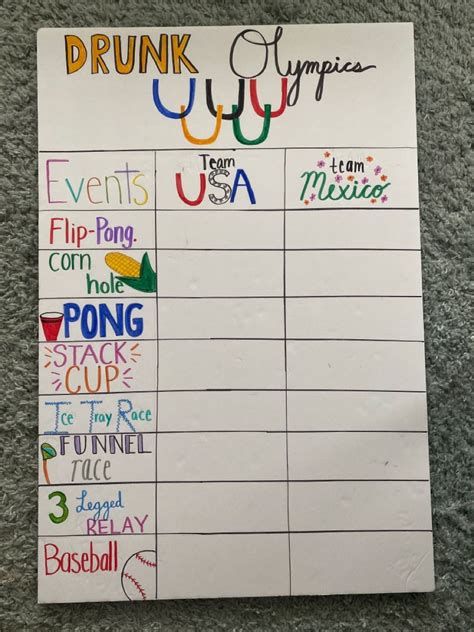 DRUNK Olympics
Events Team USA team Mexico
Flip-Pong.
corn
hole
PONG
STACK
CUP
Ice Tray Race
FUNNEL
race
3 Legged
RELAY
Baseball